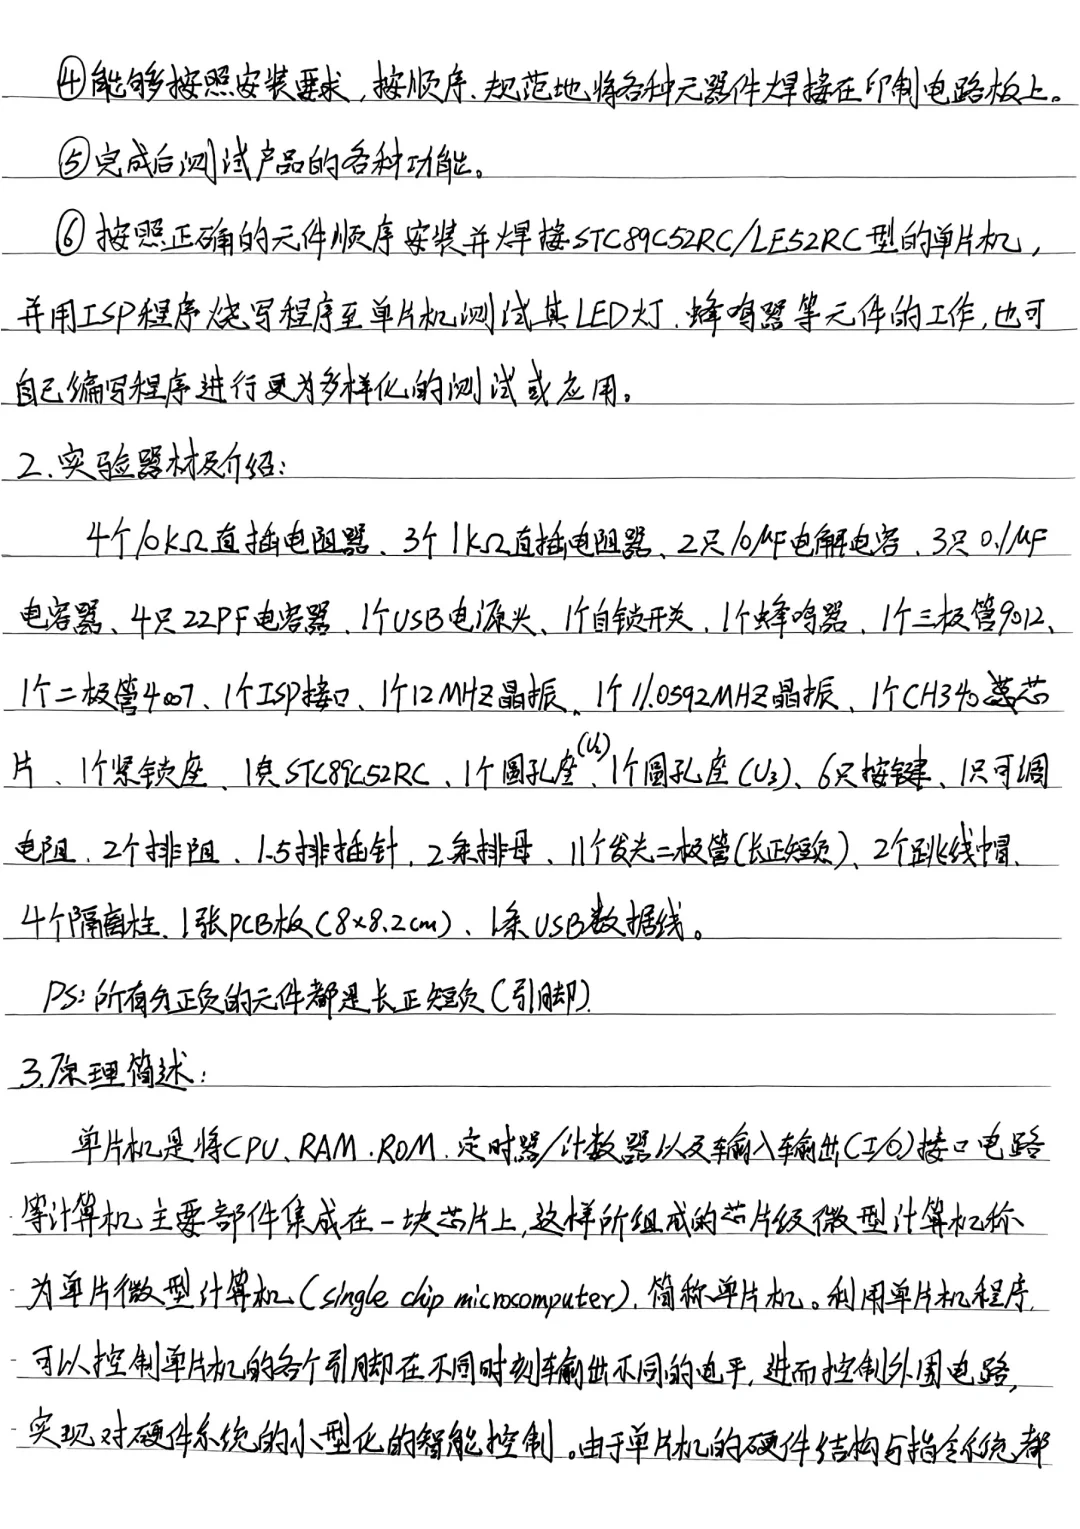 ④能够按照安装要求,按顺序、规范地将各种元器件焊接在印制电路板上。
⑤完成后测试产品的各种功能。
⑥按照正确的元件顺序安装并焊接STC89C52RC/LE52RC型的单片机,
并用ISP程序烧写程序至单片机测试其LED灯、蜂鸣器等元件的工作,也可
自己编写程序进行更为多样化的测试或应用。
2.实验器材及介绍:
4个10kΩ直插电阻器、3个1kΩ直插电阻器、2只10μF电解电容、3只0.1μF
电容器、4只22PF电容器、1个USB电源头、1个自锁开关、1个蜂鸣器、1个三极管9012、
1个二极管4007、1个ISP接口、1个12MHZ晶振、1个11.0592MHZ晶振、1个CH340芯
片、1个紧锁座、1只STC89C52RC、1个圆孔座(U2)、1个圆孔座(U3)、6只按键、1只可调
电阻、2个排阻、1.5排插针、2条排母、11个发光二极管(长正短负)、2个跳线帽、
4个隔离柱、1张PCB板(8×8.2cm)、1条USB数据线。
PS:所有分正负的元件都是长正短负(引脚).
3.原理简述:
单片机是将CPU、RAM、ROM、定时器/计数器以及输入输出(I/O)接口电路
等计算机主要部件集成在一块芯片上,这样所组成的芯片级微型计算机称
为单片微型计算机(single chip microcomputer),简称单片机。利用单片机程序,
可以控制单片机的各个引脚在不同时刻输出不同的电平,进而控制外围电路,
实现对硬件系统的小型化的智能控制。由于单片机的硬件结构与指令系统都